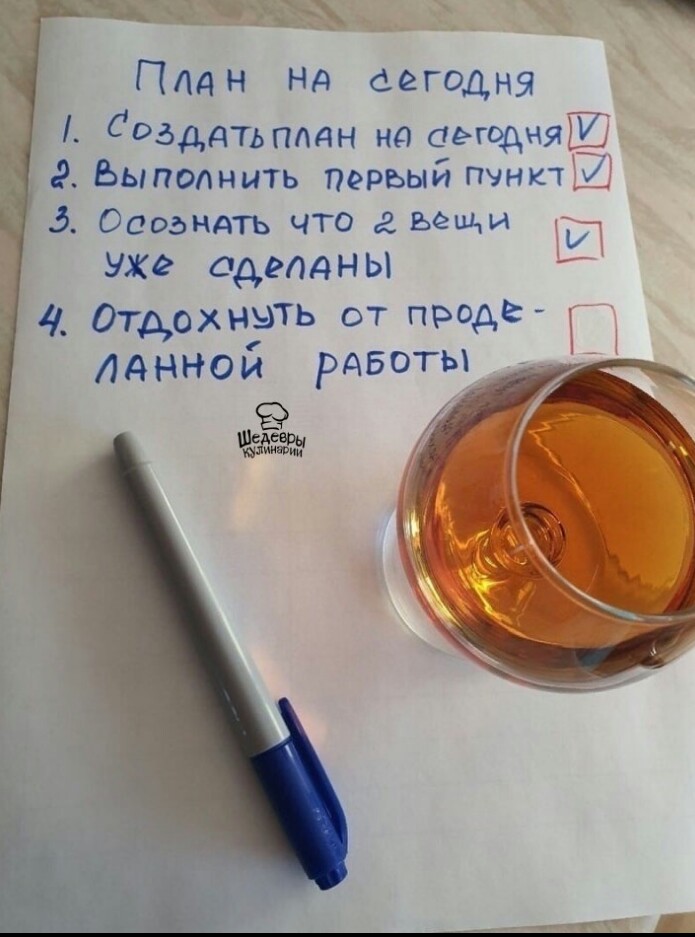 План на сегодня
1. Создать план на сегодня
2. Выполнить первый пункт
3. Осознать что 2 вещи
уже сделаны
4. Отдохнуть от проде-
ланной работы
Шедевры
кулинарии